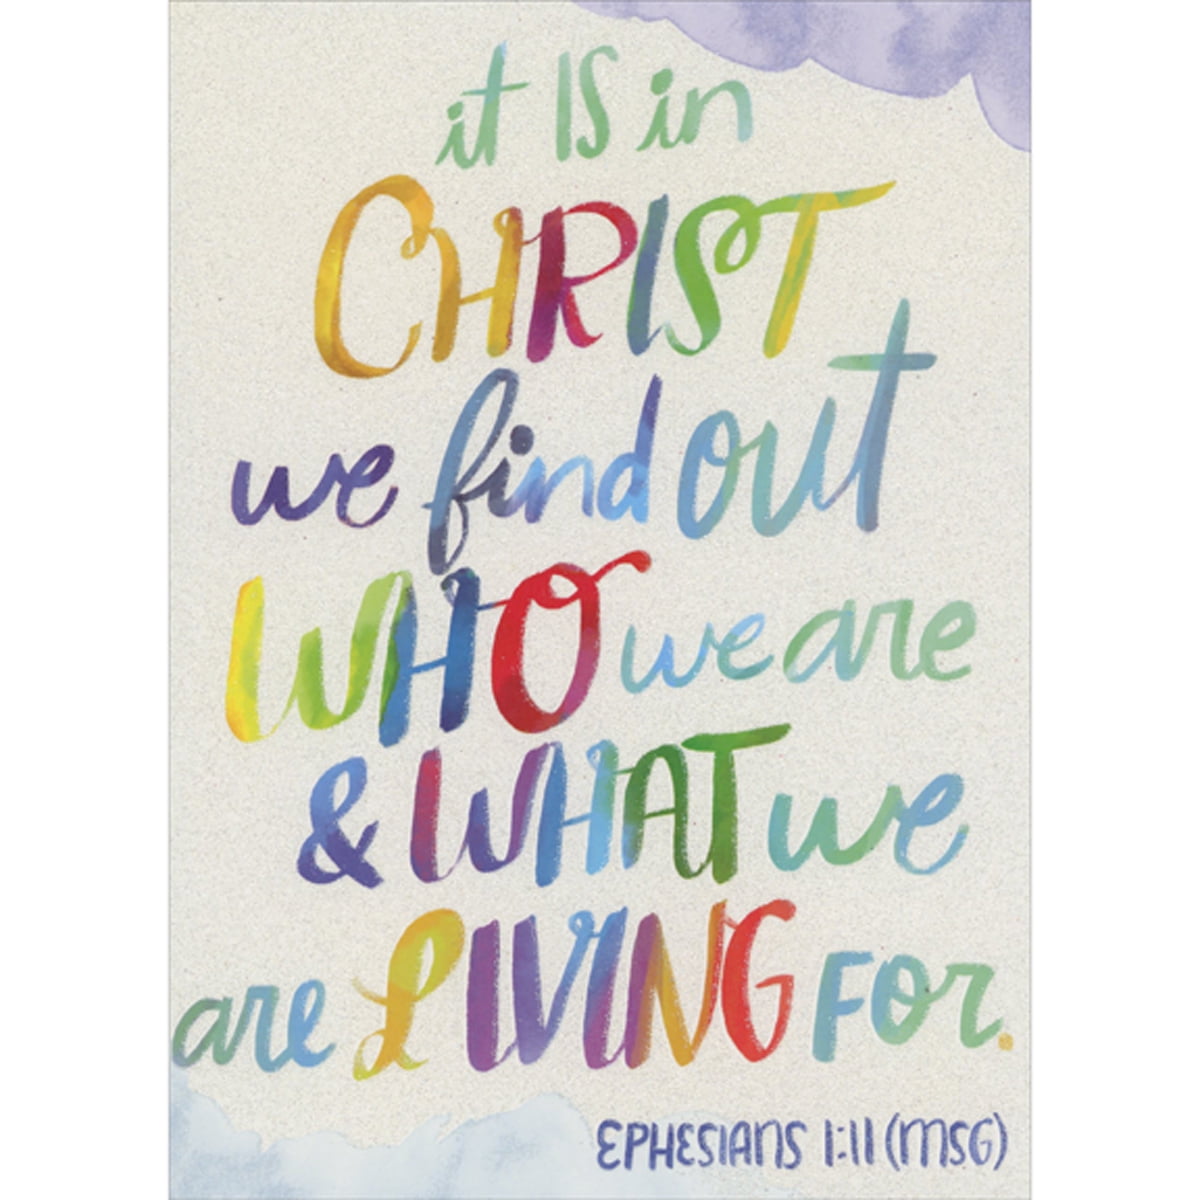 it IS in
CHRIST
we find out
WHO we are
& WHAT we
are LIVING FOr.
EPHESIANS 1:11 (MSG)